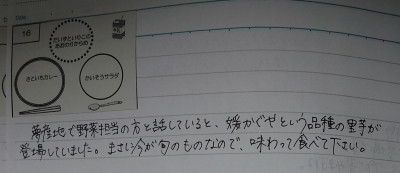 Date
16
だいずといりこの
あおのりがらめ
さといもカレー
かいそうサラダ
産地で野菜担当の方と話していると、媛かぐやという品種の里芋が
登場していました。まさに今が旬のものなので、味わって食べて下さい。